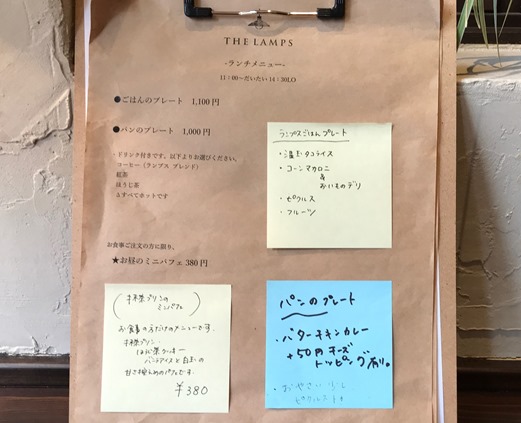 THE LAMPS
-ランチメニュー-
11：00〜だいたい14：30LO
●ごはんのプレート 1,100円
●パンのプレート 1,000円
ドリンク付きです。以下よりお選びください。
コーヒー（ランプス ブレンド）
紅茶
ほうじ茶
△すべてホットです
ランプスごはんプレート
・温玉タコライス
・コーンマカロニ
&
おいものデリ
・ピクルス
・フルーツ
お食事ご注文の方に限り、
★お昼のミニパフェ 380円
(抹茶プリンの
ミニパフェ)
お食事の方だけのメニューです。
抹茶プリン
ほうじ茶クッキー
バニラアイスと白玉の
甘さ控えめのパフェです。
¥380
パンのプレート
・バターチキンカレー
+50円チーズ
トッピング有り。